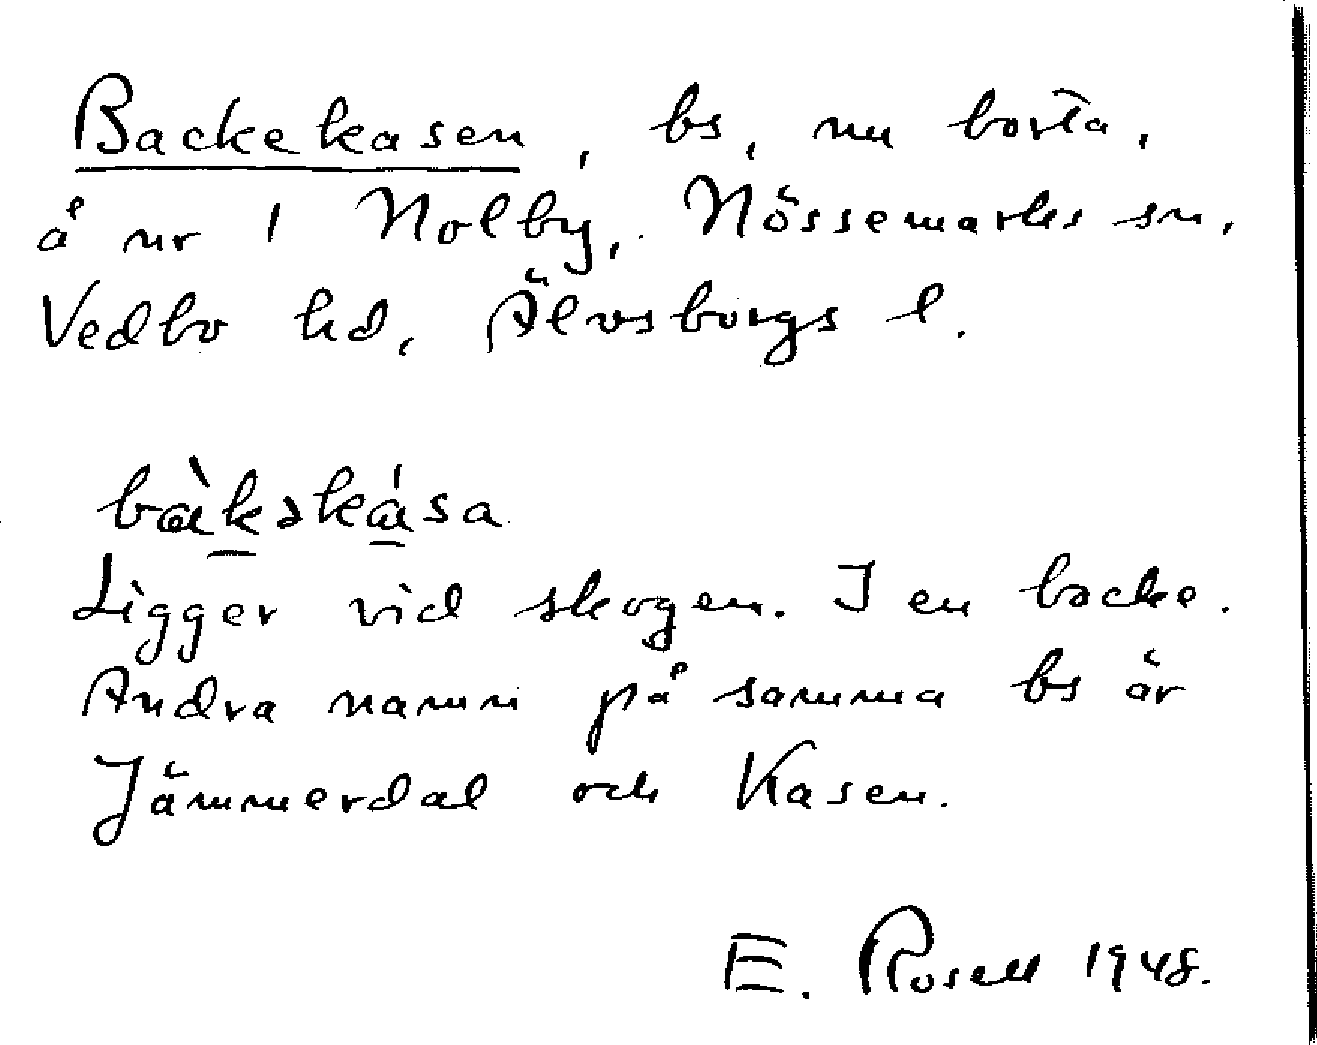 Backekasen, bs, nu borta,
å nr 1 Nolby, Nössemarks sn,
Vedbo hd, Älvsborgs l.
bàkəkása
Ligger vid skogen. I en backe.
Andra namn på samma bs är
Jämmerdal och Kasen.
E. Rosell 1948.